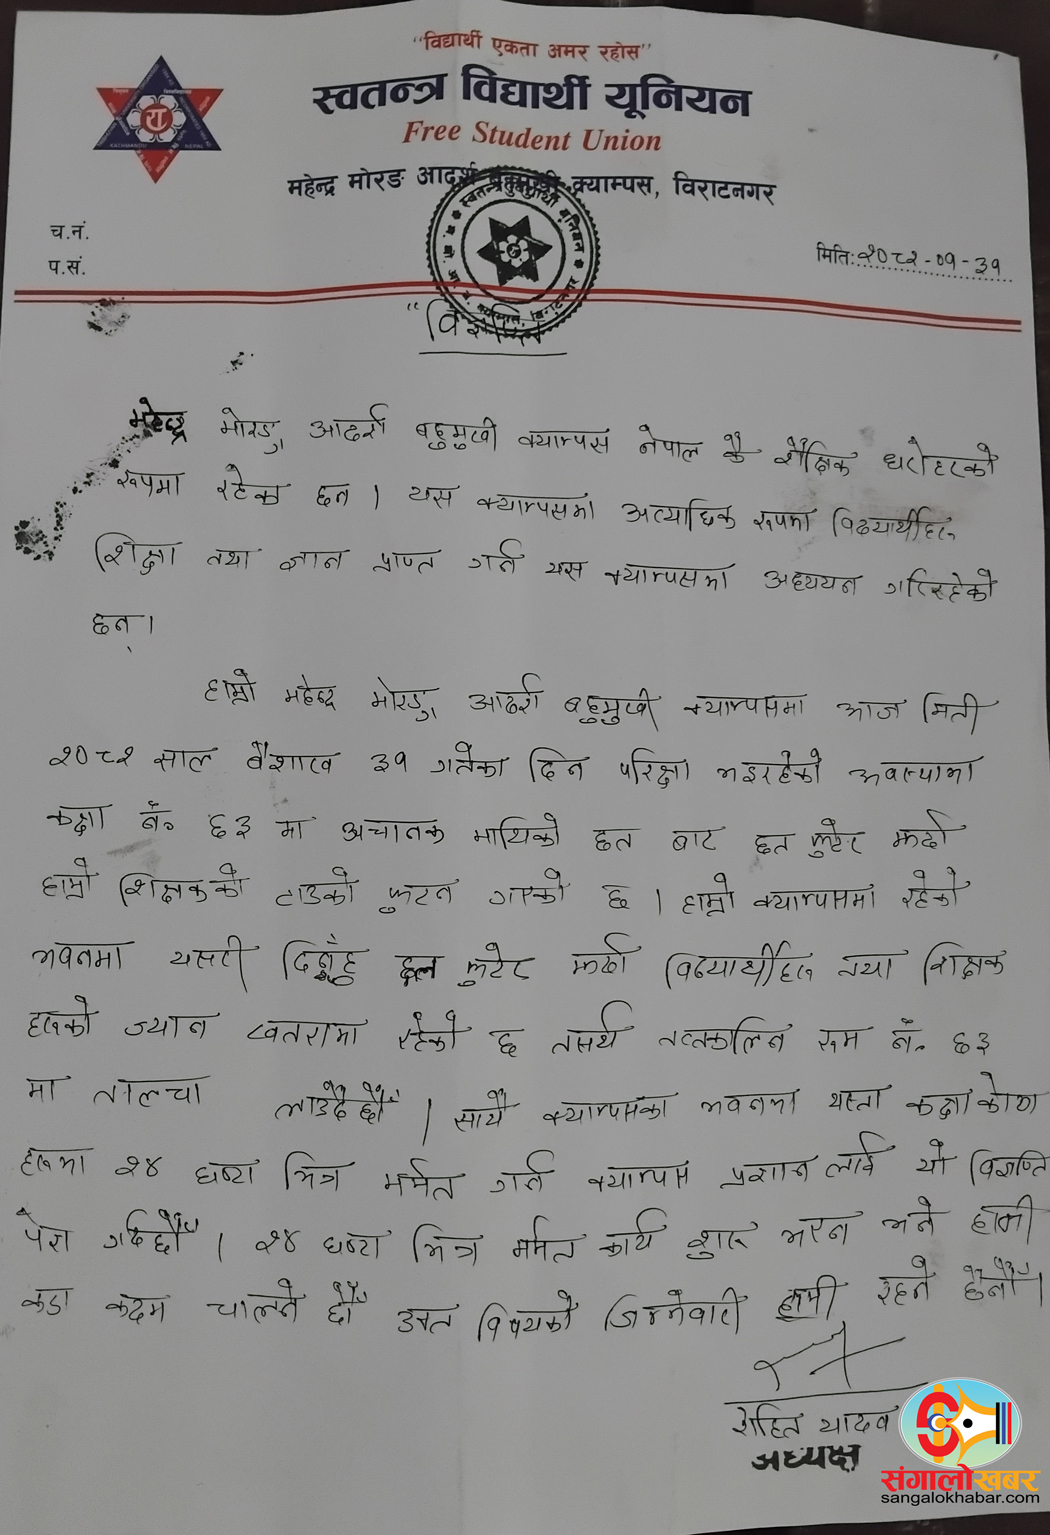 "विद्यार्थी एकता अमर रहोस"
स्वतन्त्र विद्यार्थी यूनियन
Free Student Union
महेन्द्र मोरङ आदर्श बहुमुखी क्याम्पस, विराटनगर
च.नं.
प.सं.
मिति: २०८२-०१-३१
"विज्ञप्ति
महेन्द्र मोरङ्ग आदर्श बहुमुखी क्याम्पस नेपाल कै शैक्षिक धरोहरको
रूपमा रहेका छन । यस क्याम्पसमा अत्याधिक रूपमा विद्यार्थीहरू
शिक्षा तथा ज्ञान प्राप्त गर्न यस क्याम्पसमा अध्ययन गरिरहेको
छन् ।
हाम्रो महेन्द्र मोरङ्ग आदर्श बहुमुखी क्याम्पसमा आज मिती
२०८२ साल वैशाख ३१ गतेका दिन परिक्षा भइरहेको अवस्थामा
कक्षा नं. ६३ मा अचानक माथिको छत बाट छत फुटेर झर्दा
हाम्रो शिक्षकको टाउको फुटन गएको छ । हाम्रो क्याम्पसमा रहेको
भवनमा यसरी दिनहुँ छत फुटेर झर्दा विद्यार्थीहरू तथा शिक्षक
हरूको ज्यान खतरामा रहेको छ तसर्थ तत्कालिन रूम नं. ६३
मा ताल्चा लाउदै छौँ । साथै क्याम्पसका भवनमा यस्ता कक्षाकोठा
हरूमा २४ घण्टा भित्र मर्मत गर्न क्याम्पस प्रशासन लाई यो विज्ञप्ति
पेश गर्दछौँ । २४ घण्टा भित्र मर्मत कार्य शुरू भएन भने हामी
कडा कदम चाल्ने छौँ उक्त विषयको जिम्मेवारी हामी रहने छैनौँ ।
रोहित यादव
अध्यक्ष
संगालोखबर
sangalokhabar.com